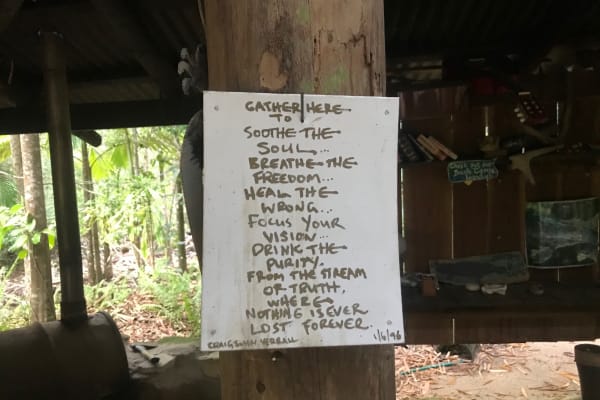 GATHER HERE
TO
SOOTHE THE
SOUL...
BREATHE THE
FREEDOM...
HEAL THE
WRONG...
FOCUS YOUR
VISION...
DRINK THE
PURITY.
FROM THE STREAM
OF TRUTH.
WHERE
NOTHING IS EVER
LOST FOREVER.
CRAIG JOHN VERRALL 1/6/96